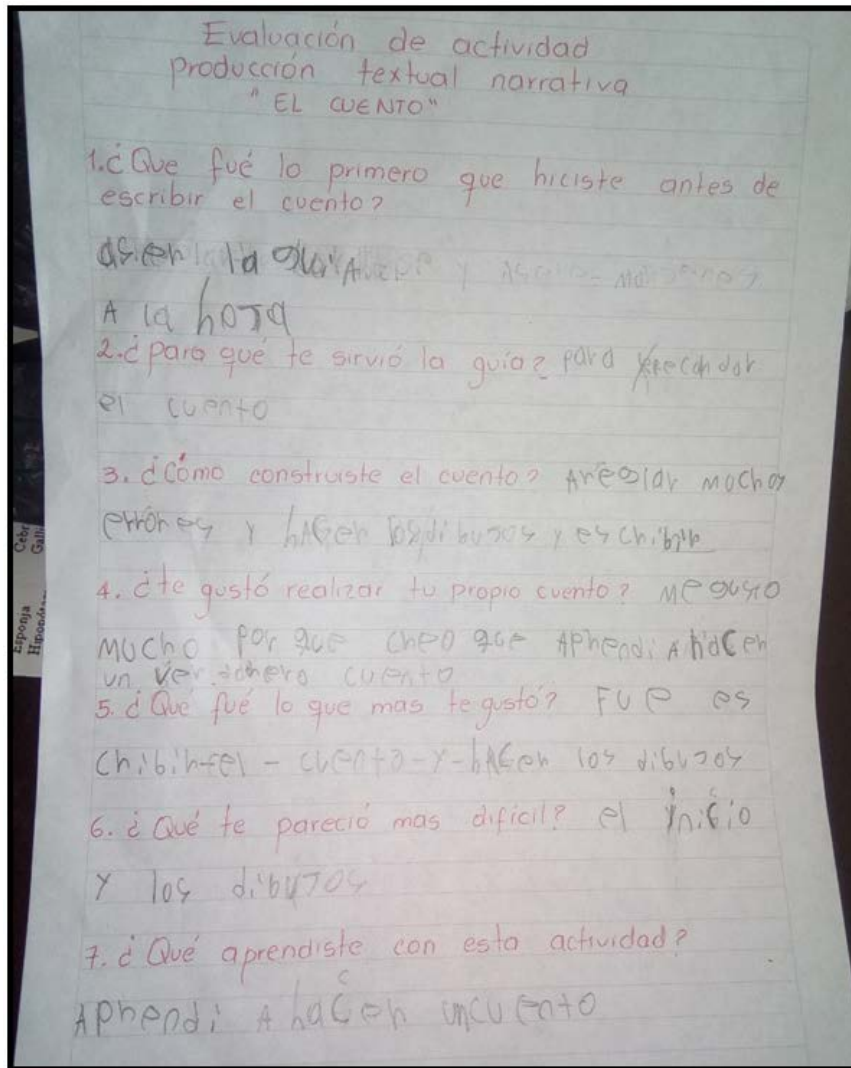 Evaluación de actividad
Producción textual narrativa
"EL CUENTO"
1.¿Que fué lo primero que hiciste antes de
escribir el cuento?
la
A la hoJa
2.¿para qué te sirvió la guía? para
el cuento
3. ¿Cómo construiste el cuento? Areglar muchos
errores y hAcer los dibujos y eschibir
4. ¿te gustó realizar tu propio cuento? me gusto
mucho por que cheo que Aphendi A hacer
un verdohero cuento
5. ¿Qué fué lo que mas te gustó? FUe es
chibihfel - cuento - y - hAcer los dibujos
6. ¿Qué te pareció mas difícil? el inicio
Y los dibuJos
7. ¿Qué aprendiste con esta actividad?
Aphendi A hacer uncuento
Esponja